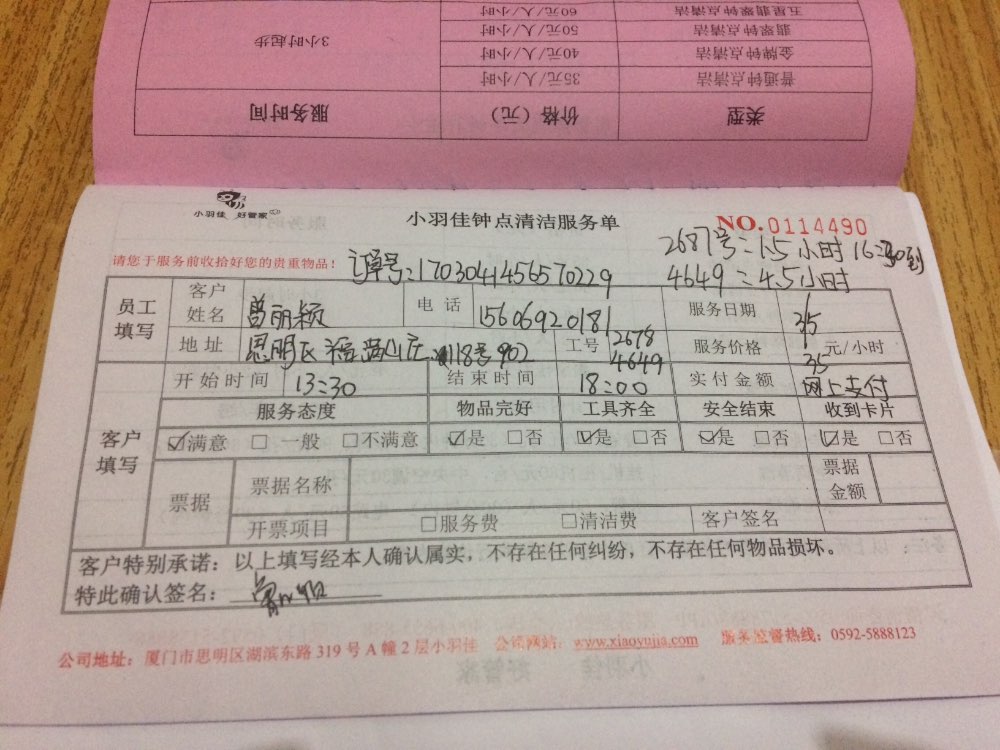 五星翡翠钟点清洁 60元/人/小时
翡翠钟点清洁 50元/人/小时
金牌钟点清洁 40元/人/小时 3小时起步
普通钟点清洁 35元/人/小时
类型 价格（元） 服务时间
小羽佳 好管家
小羽佳钟点清洁服务单
NO.0114490
2687号=1.5小时 16:30到
请您于服务前收拾好您的贵重物品！ 订单号:1703041456570229 4649=4.5小时
员工填写 客户姓名 曾丽颖 电话 15606920181 服务日期 3/5
地址 思明区福满山庄118号902 工号 2678 4649 服务价格 35 元/小时
开始时间 13:30 结束时间 18:00 实付金额 网上支付
客户填写 服务态度 物品完好 工具齐全 安全结束 收到卡片
☑满意 □一般 □不满意 ☑是 □否 ☑是 □否 ☑是 □否 ☑是 □否
票据 票据名称 票据金额
开票项目 □服务费 □清洁费 客户签名
客户特别承诺：以上填写经本人确认属实，不存在任何纠纷，不存在任何物品损坏。
特此确认签名：
公司地址：厦门市思明区湖滨东路319号A幢2层小羽佳 公司网站：www.xiaoyujia.com 服务监督热线：0592-5888123